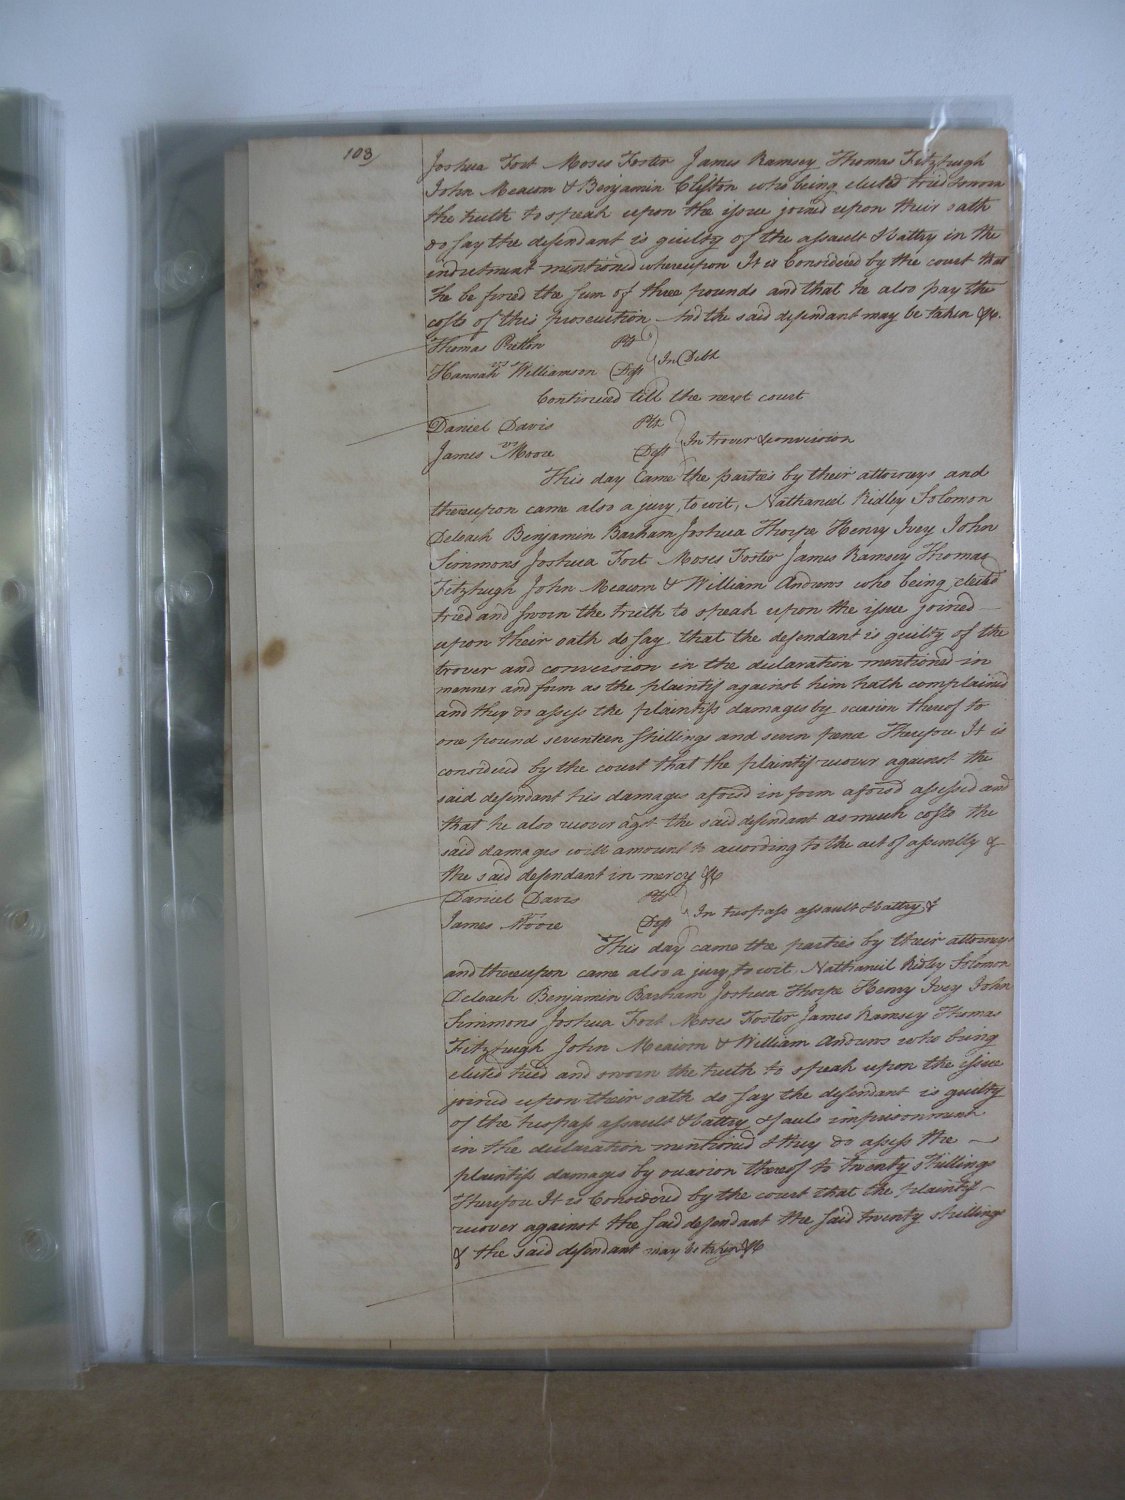 103/
Joshua Fort Moses Foster James Ramsey Thomas Fitzhugh
John Meacom & Benjamin Clifton who being elected tried & sworn
the truth to speak upon the issue joined upon their oath
do say the defendant is guilty of the assault & battry in the
indictment mentioned whereupon It is Considered by the court that
he be fined the sum of three pounds and that he also pay the
costs of this prosecution And the said defendant may be taken &c.
Thomas Pretlow Plt
vs In Debt
Hannah Williamson Deft
Continued till the next court
Daniel Davis Plt
vs In trover & conversion
James Moore Deft
This day Came the parties by their attorneys and
thereupon came also a jury, to wit, Nathaniel Ridley Solomon
Deloach Benjamin Barham Joshua Thorpe Henry Ivey John
Simmons Joshua Fort Moses Foster James Ramsey Thomas
Fitzhugh John Meacom & William Andrews who being elected
tried and sworn the truth to speak upon the issue joined
upon their oath do say that the defendant is guilty of the
trover and conversion in the declaration mentioned in
manner and form as the plaintif against him hath complained
and they do assess the plaintifs damages by ocasion thereof to
one pound seventeen shillings and seven pence Therefore It is
considered by the court that the plaintif recover against the
said defendant his damages aforsd in form aforsd assessed and
that he also recover agst the said defendant as much costs the
said damages will amount to according to the act of assembly &
the said defendant in mercy &c
Daniel Davis Plt
vs In trespass assault & battry &
James Moore Deft
This day came the parties by their attorneys
and thereupon came also a jury, to wit, Nathaniel Ridley Solomon
Deloach Benjamin Barham Joshua Thorpe Henry Ivey John
Simmons Joshua Fort Moses Foster James Ramsey Thomas
Fitzhugh John Meacom & William Andrews who being
elected tried and sworn the truth to speak upon the issue
joined upon their oath do say the defendant is guilty
of the trespass assault & battry & fauls imprisonment
in the declaration mentioned & they do assess the
plaintifs damages by ocasion thereof to twenty shillings
Therefore It is Considered by the court that the plaintif
recover against the said defendant the said twenty shillings
& the said defendant may be taken &c